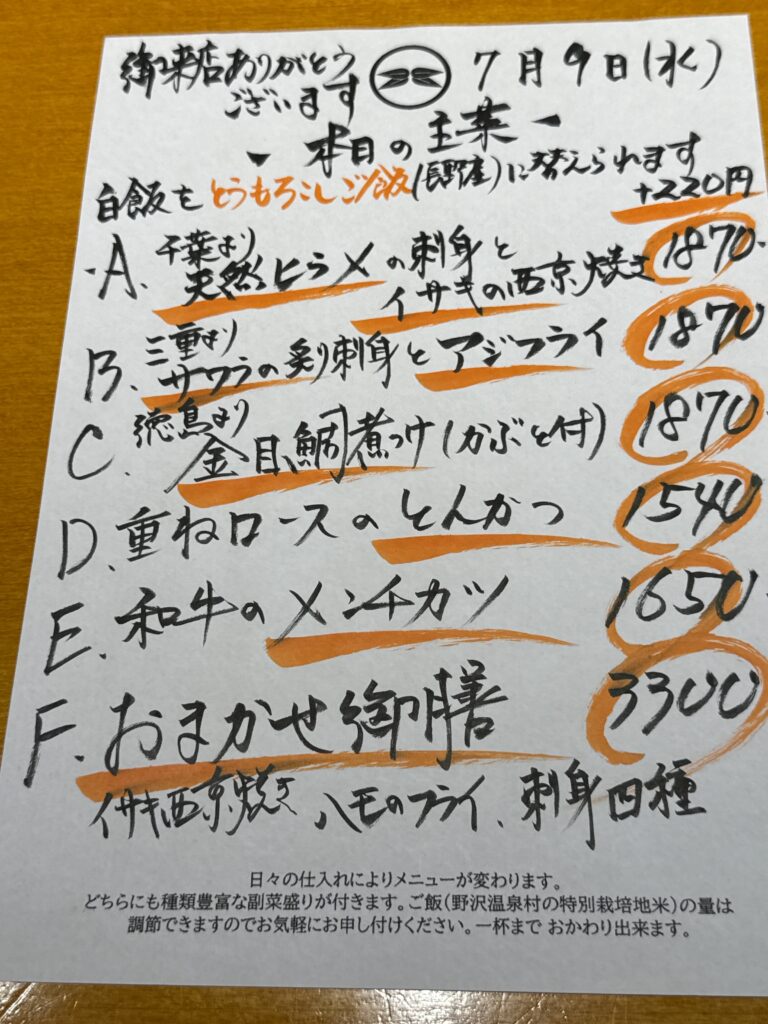 御来店ありがとう
ございます
7月9日(水)
本日の主菜
白飯をとうもろこしご飯(長野産)に替えられます
+220円
A. 千葉より
天然ヒラメの刺身と
イサキの西京焼き 1870.
B. 三重より
サワラの炙り刺身とアジフライ 1870
C. 徳島より
金目鯛煮つけ(かぶと付) 1870.
D. 重ねロースのとんかつ 1540
E. 和牛のメンチカツ 1650.
F. おまかせ御膳 3300
イサキ西京焼き ハモのフライ、刺身四種
日々の仕入れによりメニューが変わります。
どちらにも種類豊富な副菜盛りが付きます。ご飯(野沢温泉村の特別栽培地米)の量は
調節できますのでお気軽にお申し付けください。一杯まで おかわり出来ます。